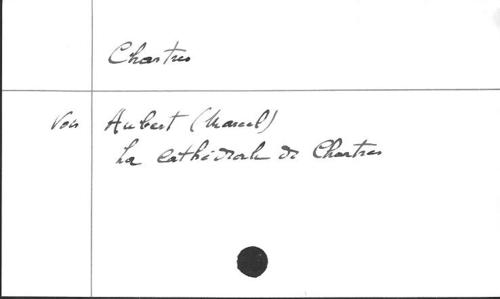 Chartres
Voir Aubert (Marcel)
La cathédrale de Chartres